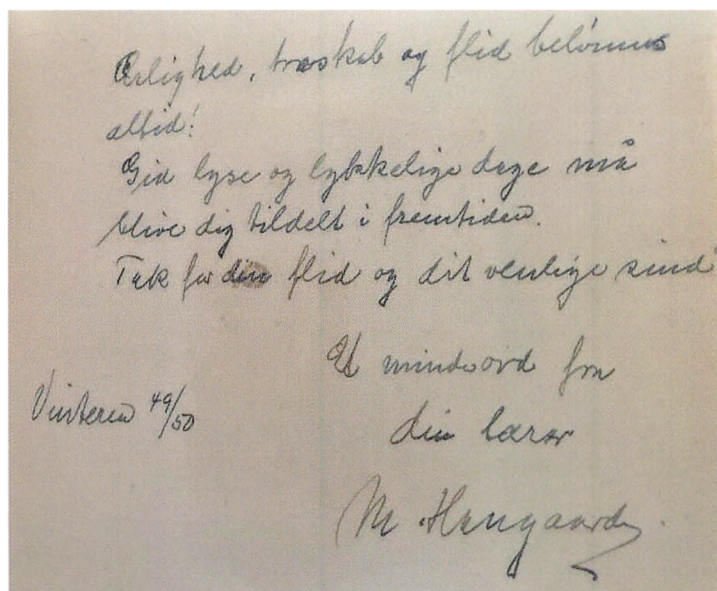 Ærlighed, troskab og flid belønnes
altid!
Gid lyse og lykkelige dage må
blive dig tildelt i fremtiden.
Tak for din flid og dit venlige sind
Et mindeord fra
Vinteren 49/50
din lærer
M. Haugaard